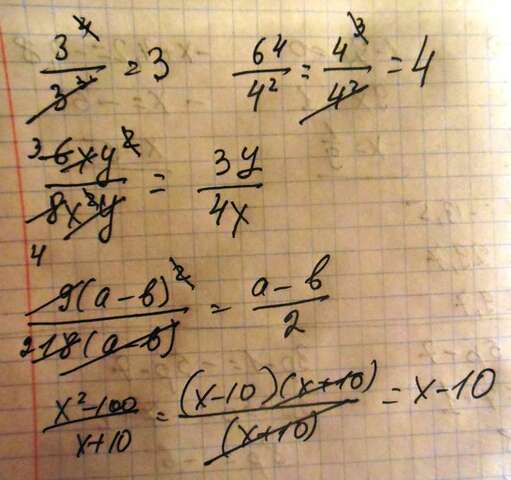 3^4/3^3 = 3    64/4^2 = 4^3/4^2 = 4
3 6xy^2 / 8x^2y 4 = 3y/4x
9(a-b)^2 / 2 18(a-b) = a-b/2
x^2-100/x+10 = (x-10)(x+10)/(x+10) = x-10